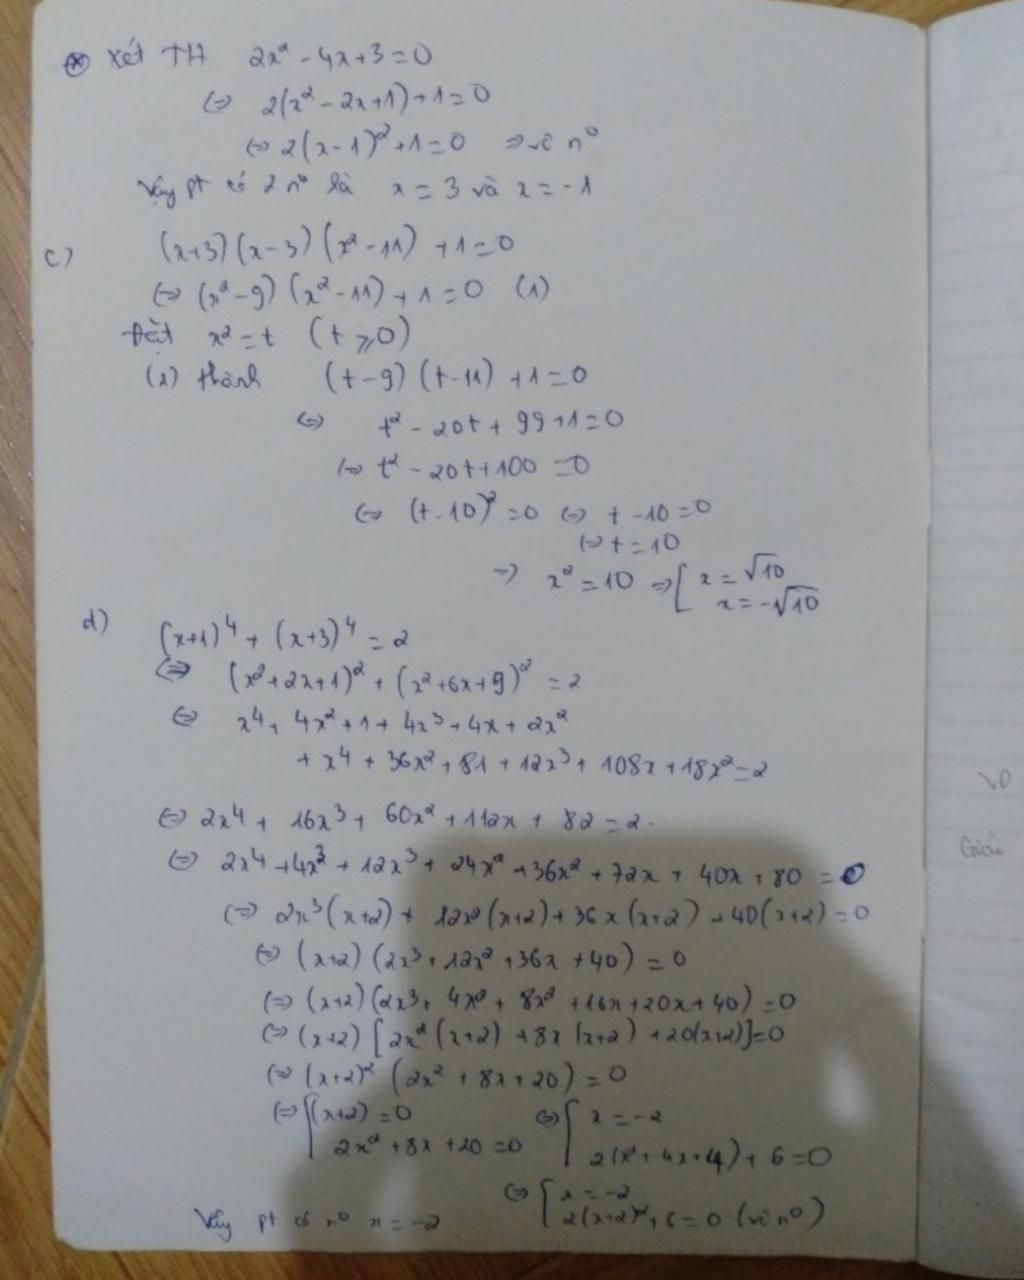 ⊛ Xét TH 2x² - 4x+3=0
⇔ 2(x² - 2x+1)+1=0
⇔ 2(x-1)²+1=0 ⇒ vô n⁰
Vậy pt có 2 n⁰ là x = 3 và x = -1
c) (x+3)(x-3)(x²-11) +1=0
⇔ (x²-9)(x²-11)+1=0 (1)
Đặt x²=t (t⩾0)
(1) thành (t-9)(t-11)+1=0
⇔ t² - 20t + 99+1=0
⇔ t² - 20t+100 =0
⇔ (t-10)²=0 ⇔ t-10=0
⇔ t=10
⇒ x²=10 ⇒ [ x=√10
x=-√10
d) (x+1)⁴ + (x+3)⁴ = 2
⇔ (x²+2x+1)² + (x²+6x+9)² = 2
⇔ x⁴ + 4x²+1+ 4x³+4x+ 2x²
+ x⁴ + 36x²+81+12x³+108x+18x²=2
⇔ 2x⁴ + 16x³ + 60x²+112x + 82 = 2.
⇔ 2x⁴ +4x³ + 12x³+ 24x²+36x² + 72x + 40x + 80 = 0
⇔ 2x³(x+2) + 12x²(x+2)+36x(x+2) +40(x+2)=0
⇔ (x+2)(2x³+12x²+36x+40)=0
⇔ (x+2)(2x³+ 4x²+ 8x² +16x+20x+40)=0
⇔ (x+2)[2x²(x+2)+8x(x+2) +20(x+2)]=0
⇔ (x+2)² (2x² + 8x+20)=0
⇔ [ (x+2)=0 ⇔ [ x=-2
2x²+8x+20=0 2(x²+4x+4)+6=0
⇔ [ x=-2
Vậy pt có n⁰ x=-2 2(x+2)²+6=0 (vô n⁰)
VD
Giải